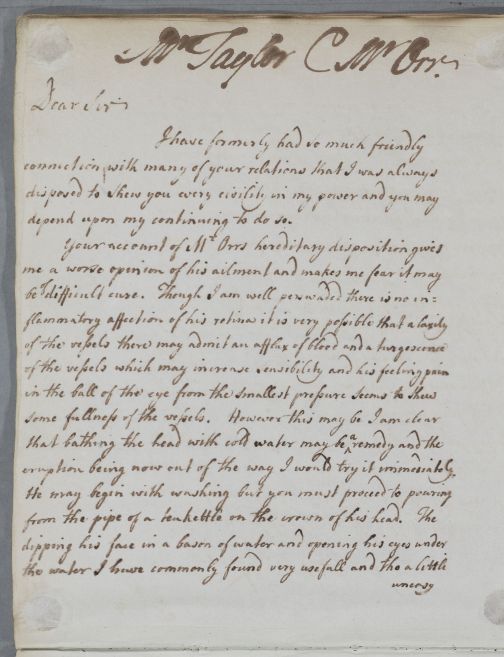 Mr Taylor C Mr Orr.
Dear Sir
I have formerly had so much friendly
connection with many of your relations that I was always
disposed to shew you every civility in my power and you may
depend upon my continuing to do so.
Your account of Mr Orrs hereditary disposition gives
me a worse opinion of his ailment and makes me fear it may
be of difficult cure. Though I am well perswaded there is no in=
flammatory affection of his retina it is very possible that a laxity
of the vessels there may admit an afflux of blood and a turgescence
of the vessels which may increase sensibility and his feeling pain
in the ball of the eye from the smallest pressure seems to shew
some fullness of the vessels. However this may be I am clear
that bathing the head with cold water may be a remedy and the
eruption being now out of the way I would try it immediately.
He may begin with washing but you must proceed to pouring
from the pipe of a teakettle on the crown of his head. The
dipping his face in a bason of water and opening his eyes under
the water I have commonly found very usefull and tho a little
uneasy